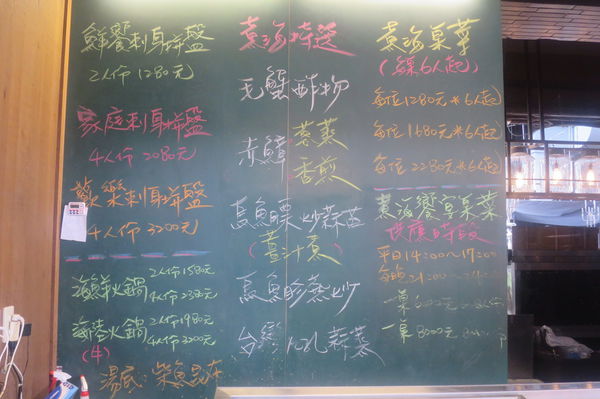 鮮饗刺身拼盤
2人份 1280元
家庭刺身拼盤
4人份 2080元
歡樂刺身拼盤
4人份 3200元
海鮮火鍋 2人份1580元
4人份2380元
海陸火鍋 2人份1980元
(牛) 4人份3200元
湯底: 柴魚昆布
時選
无蟹酢物
赤鯮 薑蒸
香煎
烏魚膘 炒蒜苗
(薑汁煮)
烏魚胗 炒
台灣 九孔 蒜蒸
海菓菜
(6人起)
每位1280元*6人起
每位1680元*6人起
每位2280元*6人起
海饗宴菓菜
供應時段
平日14:00~17:00
一桌
一桌 8000元